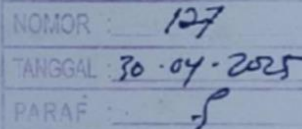 NOMOR : 127
TANGGAL : 30-04-2025
PARAF :